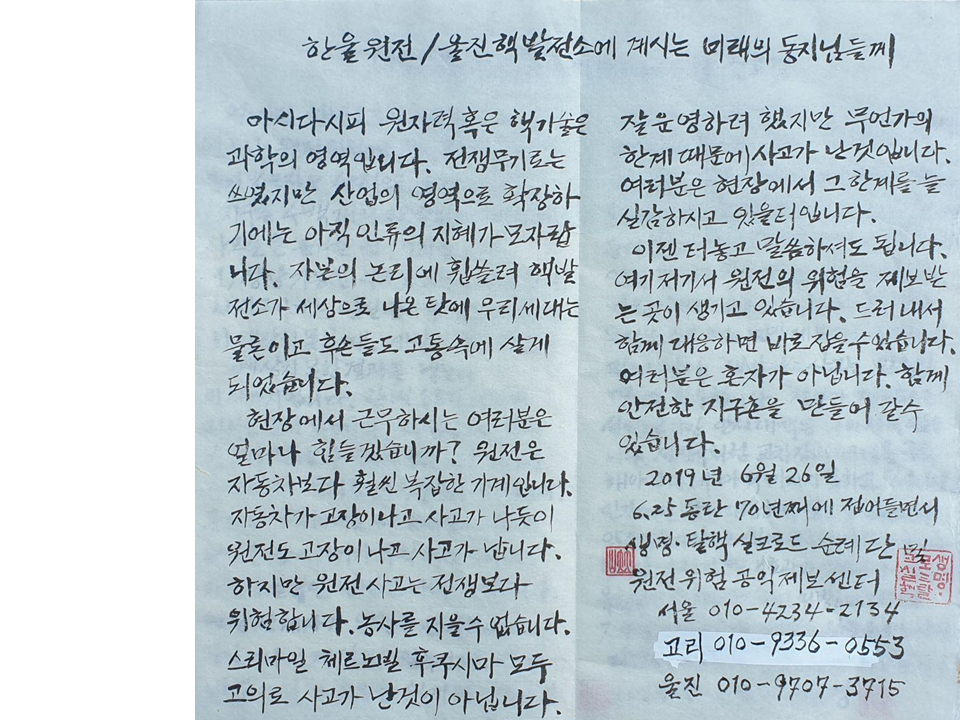 한울원전/울진핵발전소에 계시는 미래의 동지님들께
아시다시피 원자력 혹은 핵기술은
과학의 영역입니다. 전쟁무기로는
쓰였지만 산업의 영역으로 확장하
기에는 아직 인류의 지혜가 모자랍
니다. 자본의 논리에 휩쓸려 핵발
전소가 세상으로 나온 탓에 우리세대는
물론이고 후손들도 고통속에 살게
되었습니다.
현장에서 근무하시는 여러분은
얼마나 힘들겠습니까? 원전은
자동차보다 훨씬 복잡한 기계입니다.
자동차가 고장이나고 사고가 나듯이
원전도 고장이 나고 사고가 납니다.
하지만 원전 사고는 전쟁보다
위험합니다. 농사를 지을수 없습니다.
스리마일 체르노빌 후쿠시마 모두
고의로 사고가 난것이 아닙니다.
잘 운영하려 했지만 무언가의
한계 때문에 사고가 난것입니다.
여러분은 현장에서 그 한계를 늘
실감하시고 있을터입니다.
이젠 터놓고 말씀하셔도 됩니다.
여기저기서 원전의 위험을 제보받
는 곳이 생기고 있습니다. 드러내서
함께 대응하면 바로잡을수 있습니다.
여러분은 혼자가 아닙니다. 함께
안전한 지구촌을 만들어 갈수
있습니다.
2019년 6월 26일
6.25 동란 70년째에 접어들면서
생명·탈핵 실크로드 순례단 및
원전위험 공익제보센터
서울 010-4234-2134
고리 010-9336-0553
울진 010-9707-3715